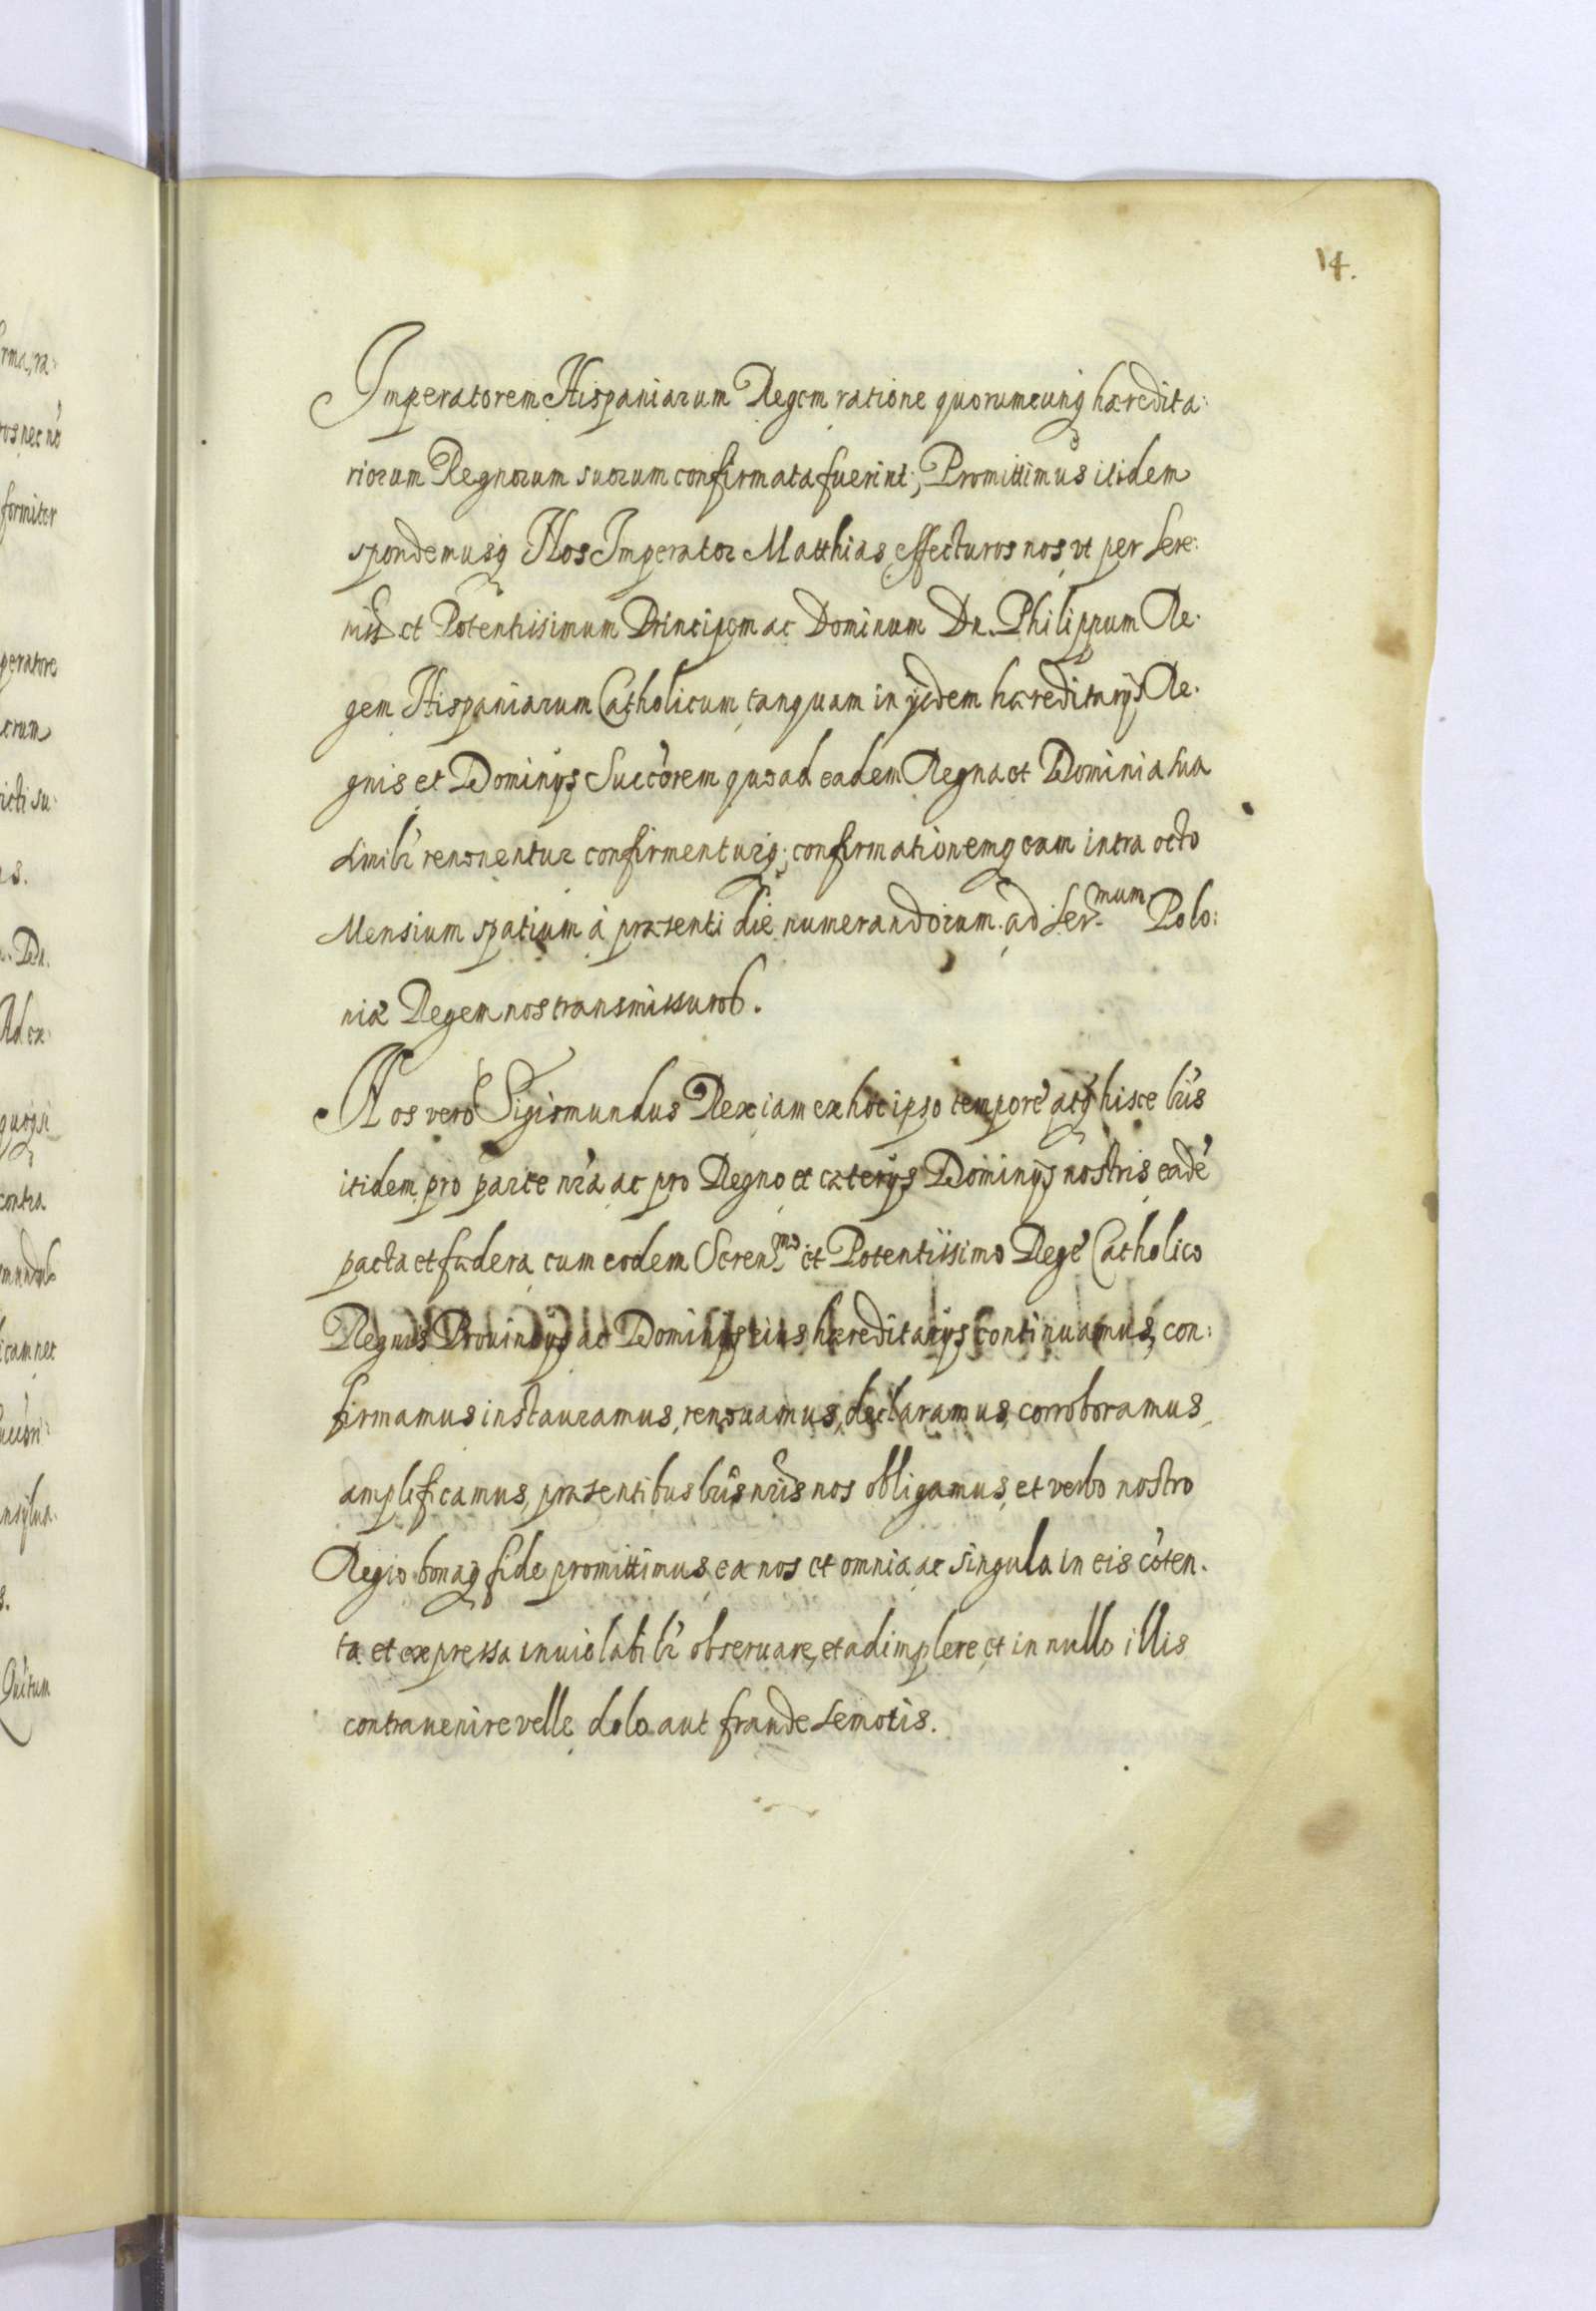 14.
Imperatorem Hispaniarum Regem ratione quorumcunq hæredita:
riorum Regnorum suorum confirmata fuerint; Promittimus itidem
spondemusq Nos Imperator Matthias, effecturos nos, ut per Sere:
et Potentissimum Principem ac Dominum Dn. Philippum Re.
gem Hispaniarum Catholicum, tanquam in ijsdem hæreditarijs Re.
gnis et Dominijs Succorem quoad eadem Regna et Dominia sua
similr renouentur confirmenturq; confirmationemq eam intra octo
Mensium spatium à præsenti die numerandorum ad Ser.mum Polo:
niæ Regem nos transmissuros.
Nos vero Sigismundus Rex iam ex hoc ipso tempore atq hisce lris
itidem pro parte nra ac pro Regno et cæterys Dominijs nostris eadē
pacta et fædera cum eodem Seren.mo et Potentissimo Rege Catholico
Regnis Prouincijs ac Dominijs eius hæreditarijs continuamus, con:
firmamus instauramus, renouamus, declaramus, corroboramus,
amplificamus, præsentibus lris nris nos obligamus, et verbo nostro
Regio bonaq fide promittimus, ea nos et omnia ac singula in eis cōten.
ta et expressa inuiolabilr obseruare, et adimplere et in nullo illis
contrauenire velle, dolo aut fraude semotis.